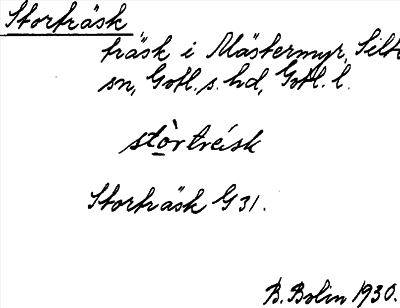 Storträsk
träsk i Mästermyr, Silte
sn, Gotl. s. hd, Gotl. l.
stòrtreisk
Storträsk G 31.
B. Bolin 1930.